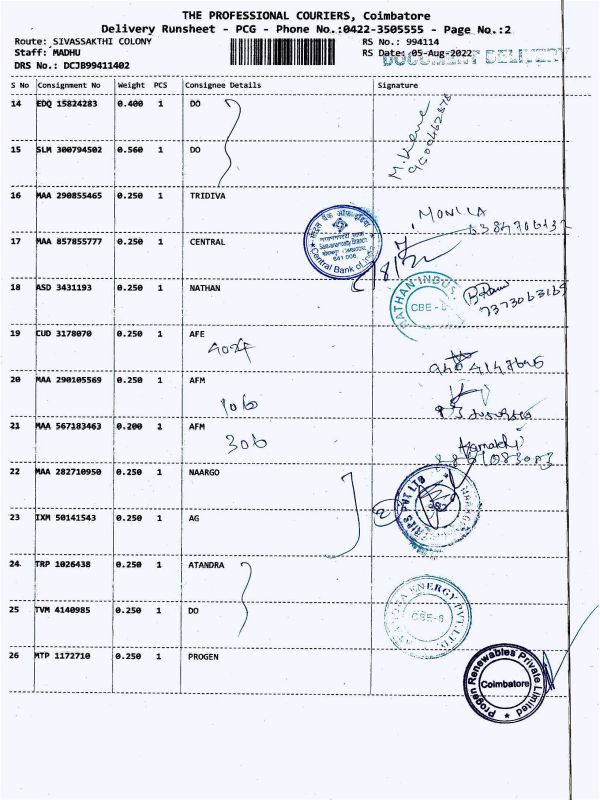 THE PROFESSIONAL COURIERS, Coimbatore
Delivery Runsheet - PCG - Phone No.:0422-3505555 - Page No.:2
Route: SIVASSAKTHI COLONY
RS No.: 994114
Staff: MADHU
RS Date: 05-Aug-2022
DOCUMENT DELIVERY
DRS No.: DCJB99411402
S No Consignment No Weight PCS Consignee Details Signature
14 EDQ 15824283 0.400 1 DO
15 SLM 300794502 0.560 1 DO
16 MAA 290855465 0.250 1 TRIDIVA
MONICA
17 MAA 857855777 0.250 1 CENTRAL
Central Bank of India
641 006
18 ASD 3431193 0.250 1 NATHAN
NATHAN INDUS
CBE - 6
19 CUD 3178070 0.250 1 AFE
20 MAA 290105569 0.250 1 AFM
106
21 MAA 567183463 0.200 1 AFM
306
22 MAA 282710950 0.250 1 NAARGO
PVT LTD
23 IXM 50141543 0.250 1 AG
24 TRP 1026438 0.250 1 ATANDRA
ENERGY PVT.LTD
CBE-6
25 TVM 4140985 0.250 1 DO
26 MTP 1172710 0.250 1 PROGEN
Progen Renewables Private Limited
Coimbatore